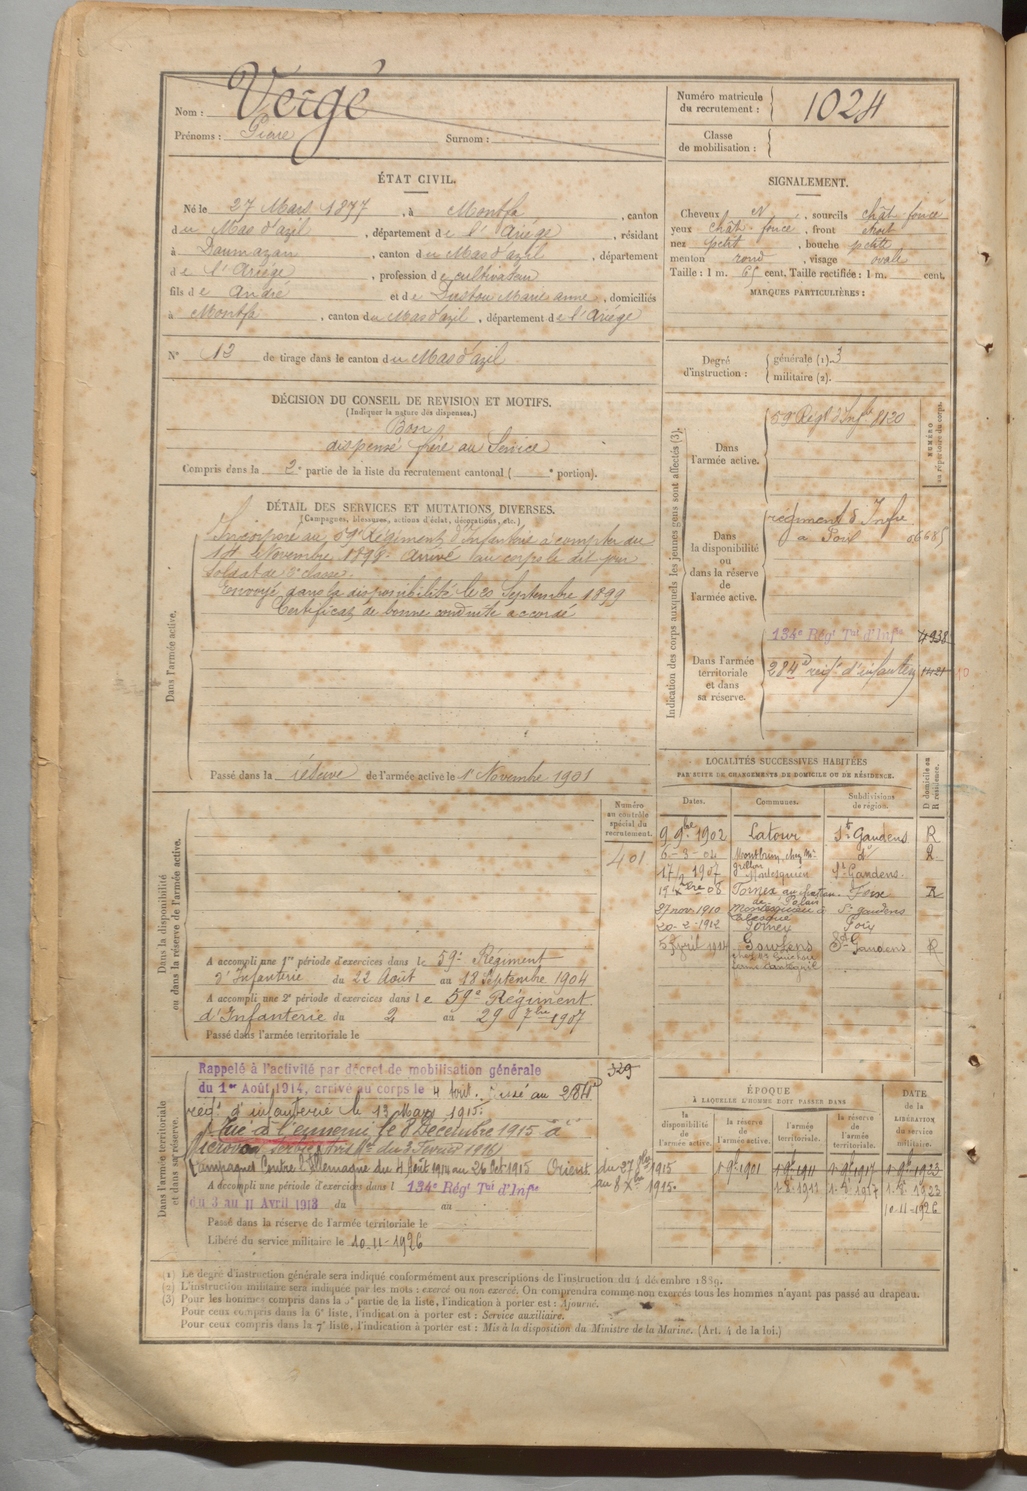 Nom : Vergé
Prénoms : Surnom :
Numéro matricule
du recrutement : 1024
Classe
de mobilisation :
ÉTAT CIVIL.
Né le 27 Mars 1877, à Montfa, canton
du Mas d'azil, département de l'Ariège, résidant
à Daumazan, canton du Mas d'azil, département
de l'Ariège, profession de cultivateur
fils de André et de Marie anne, domiciliés
à Montfa, canton du Mas d'azil, département de l'Ariège
N° 13 de tirage dans le canton du Mas d'azil
SIGNALEMENT.
Cheveux N, sourcils chât foncé
yeux chât foncé, front étroit
nez petit, bouche petite
menton rond, visage ovale
Taille : 1 m. 65 cent. Taille rectifiée : 1 m. cent.
MARQUES PARTICULIÈRES :
Degré
d'instruction :
générale (1). 3
militaire (2).
DÉCISION DU CONSEIL DE REVISION ET MOTIFS.
(Indiquer la nature des dispenses.)
Bon
dispensé frère au Service
Compris dans la 2e partie de la liste du recrutement cantonal ( e portion).
DÉTAIL DES SERVICES ET MUTATIONS DIVERSES.
(Campagnes, blessures, actions d'éclat, décorations, etc.)
Dans l'armée active.
Incorporé au 59e Régiment d'Infanterie à compter du
Novembre 1898. Arrivé au corps le dit jour
Soldat de 2e classe.
Envoyé dans la disponibilité le 20 Septembre 1899
Certificat de bonne conduite accordé
Passé dans la réserve de l'armée active le 1er Novembre 1901
Indication des corps auxquels les jeunes gens sont affectés (3).
NUMÉRO
au répertoire du corps.
Dans
l'armée active.
59e Régt d'Infie 8120
Dans
la disponibilité
ou
dans la réserve
de
l'armée active.
régiment d'Infie
à Foix 06685
Dans l'armée
territoriale
et dans
sa réserve.
134e Régt Tal d'Infie 4938
284e régt d'infanterie 1421
LOCALITÉS SUCCESSIVES HABITÉES
PAR SUITE DE CHANGEMENTS DE DOMICILE OU DE RÉSIDENCE.
D domicile ou
R résidence.
Dates. Communes. Subdivisions
de région.
9 9bre 1902 Latour St Gaudens R
6-3-04 Montbrun, chez Mr do R
17 1907 Montesquieu St Gaudens.
Xbre 08 Tornex Foix R
27 nov 1910 Montesquieu St gaudens
20-2-1912 Foix
5 Avril 1914 Gouzens St Gaudens R
Dans la disponibilité
ou dans la réserve de l'armée active.
Numéro
au contrôle
spécial du
recrutement.
401
A accompli une 1re période d'exercices dans le 59e Régiment
d'Infanterie du 22 Août au 18 Septembre 1904
A accompli une 2e période d'exercices dans le 59e Régiment
d'Infanterie du 2 au 29 7bre 1907
Passé dans l'armée territoriale le
Dans l'armée territoriale
et dans sa réserve.
Rappelé à l'activité par décret de mobilisation générale
du 1er Août 1914, arrivé au corps le 4 Août. Passé au 284e
régt d'infanterie le 13 Mars 1915.
Tué à l'ennemi le 8 Décembre 1915 à
(Avis Mel du 3 Février 1916)
Campagnes Contre l'Allemagne du 4 Août 1914 au 26 Oct 1915 Orient du 27 8bre 1915
au 8 Xbre 1915.
A accompli une période d'exercices dans l 134e Régt Tal d'Infie
du 3 au 11 Avril 1913 du au
Passé dans la réserve de l'armée territoriale le
Libéré du service militaire le 10-11-1926
329
ÉPOQUE
À LAQUELLE L'HOMME DOIT PASSER DANS
la
disponibilité
de
l'armée active.
la réserve
de
l'armée active.
l'armée
territoriale.
la réserve
de
l'armée
territoriale.
DATE
de la
LIBÉRATION
du service
militaire.
1 9b 1901 1 9b 1911 1 9b 1917 1 9b 1923
1-8-1911 1-8-1917 1-8-1923
10-11-1926
(1) Le degré d'instruction générale sera indiqué conformément aux prescriptions de l'instruction du 4 décembre 1889.
(2) L'instruction militaire sera indiquée par les mots : exercé ou non exercé. On comprendra comme non exercés tous les hommes n'ayant pas passé au drapeau.
(3) Pour les hommes compris dans la 5e partie de la liste, l'indication à porter est : Ajourné.
Pour ceux compris dans la 6e liste, l'indication à porter est : Service auxiliaire.
Pour ceux compris dans la 7e liste, l'indication à porter est : Mis à la disposition du Ministre de la Marine. (Art. 4 de la loi.)